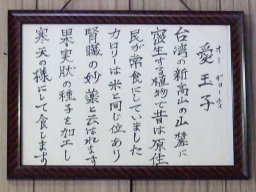 愛玉子
オーギョーチイ
台湾の新高山の山麓に
密生する植物で昔は原住
民が常食にしていました
カロリーは米と同じ位あり
腎臓の妙薬と云はれます
果実状の種子を加工し
寒天の様にして食します